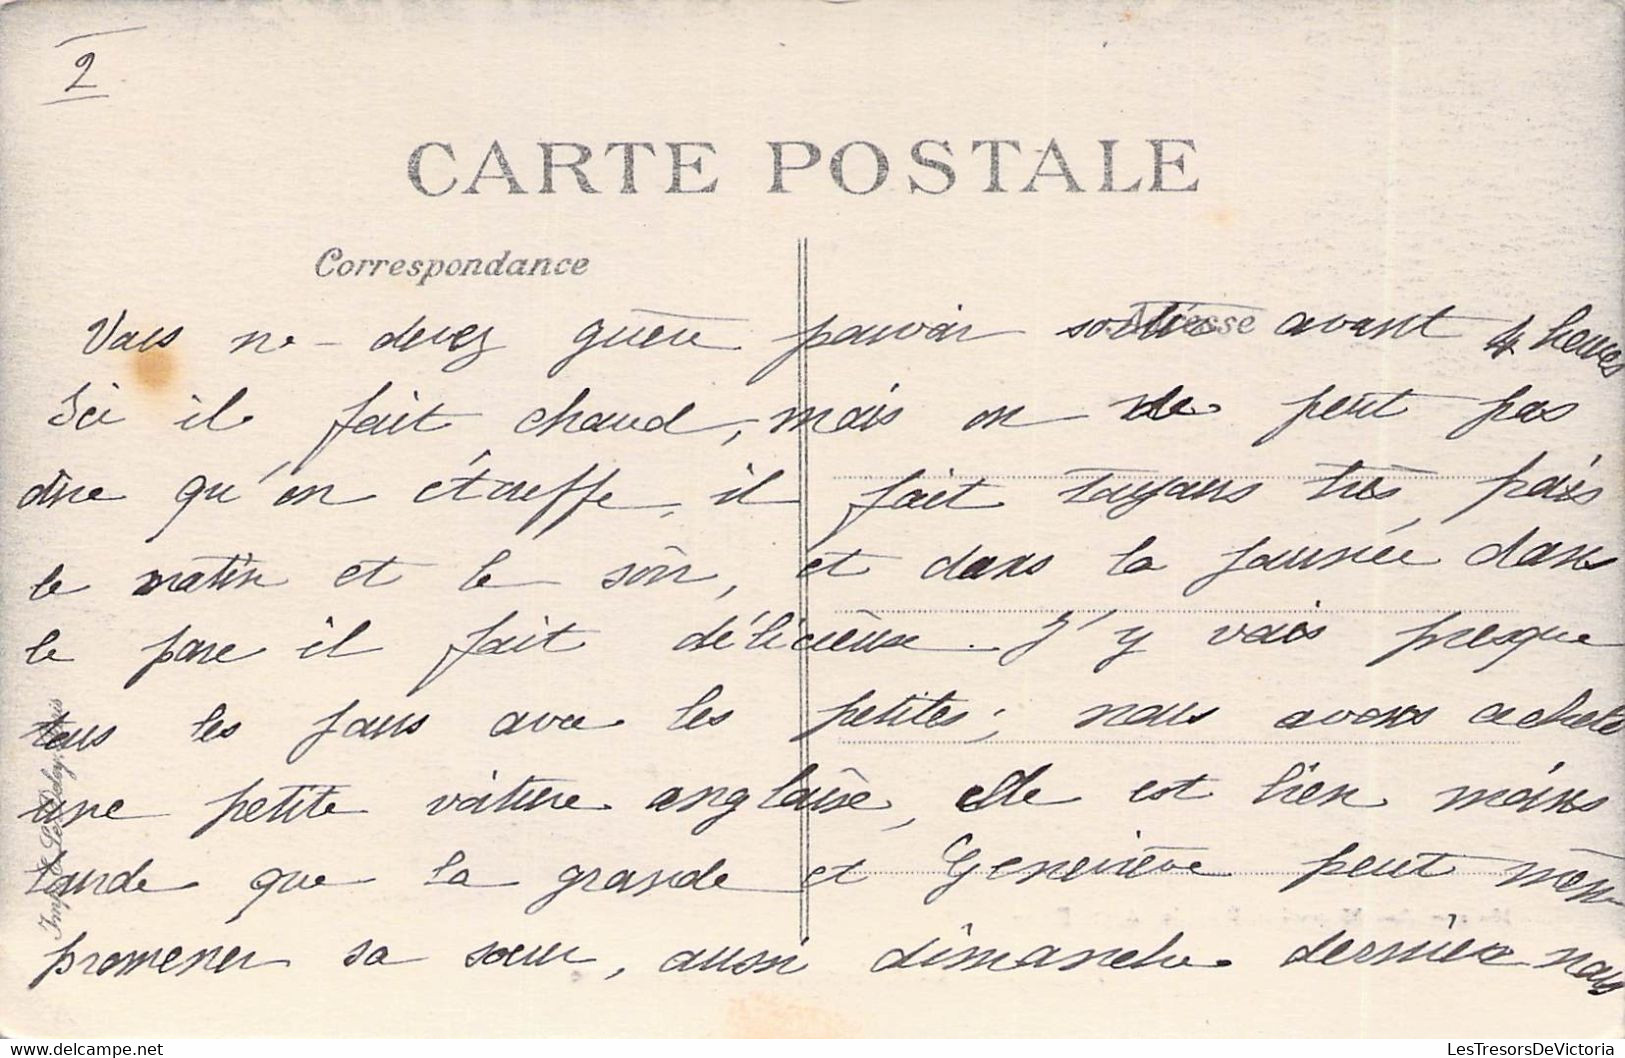 2
CARTE POSTALE
Correspondance
Adresse
Vous ne devez guère pouvoir sortir avant 4 heures
Ici il fait chaud, mais on ne peut pas
dire qu'on étouffe, il fait toujours très frais
le matin et le soir, et dans la journée dans
le parc il fait délicieux. J'y vais presque
tous les jours avec les petites; nous avons acheté
une petite voiture anglaise, elle est bien moins
lourde que la grande et Geneviève peut même
promener sa sœur, aussi dimanche dernier nous
Imp. Le Deley, Paris
LesTresorsDeVictoria